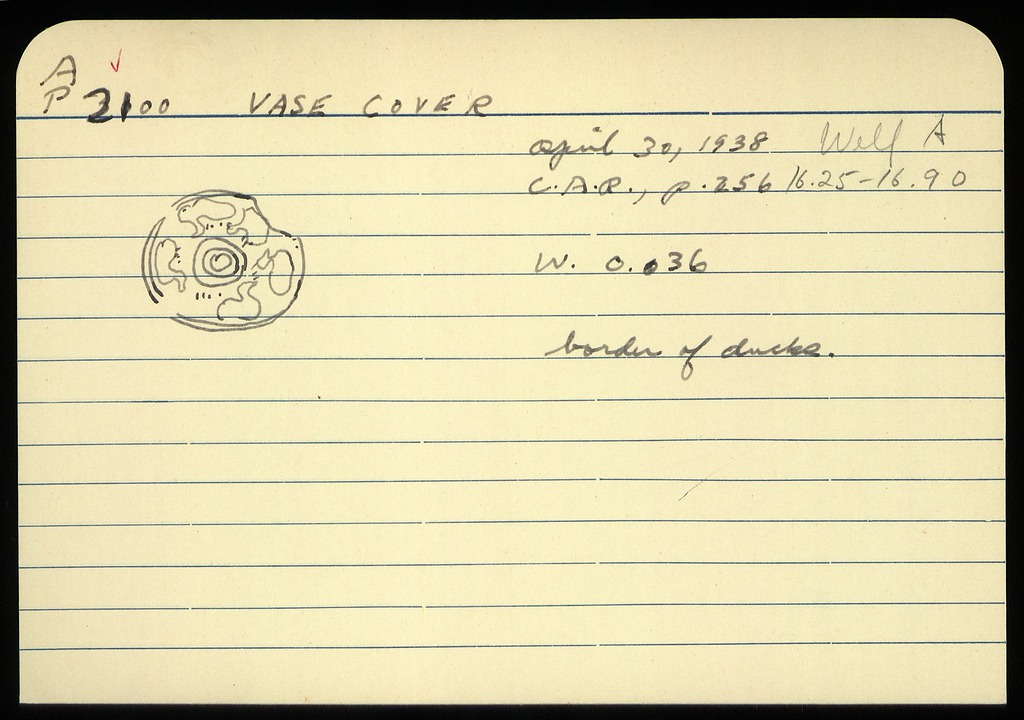 A
P 2100 VASE COVER
April 30, 1938 Well A
C.A.R., p.256 16.25-16.90
W. 0.036
border of ducks.